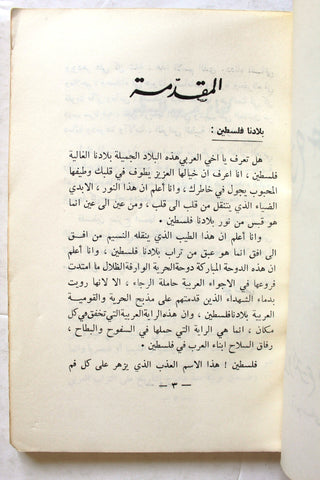 المقدّمة
بلادنا فلسطين :
هل تعرف يا اخي العربي هذه البلاد الجميلة بلادنا الغالية
فلسطين ، انا اعرف ان خيالها العزيز يطوف في قلبك وطيفها
المحبوب يجول في خاطرك ، وانا أعلم ان هذا النور ، الابدي
الضياء الذي ينتقل من قلب الى قلب ، ومن عين الى عين انما
هو قبس من نور بلادنا فلسطين .
وانا أعلم ان هذا الطيب الذي ينقله النسيم من افق
الى افق انما هو عبق من تراب بلادنا فلسطين ، وانا أعلم
ان هذه الدوحة المباركة دوحة الحرية الوارفة الظلال ما امتدت
فروعها في الاجواء العربية حاملة الرجاء ، الا لانها رويت
بدماء الشهداء الذين قدمتهم على مذبح الحرية والقومية
العربية بلادنا فلسطين ، وان هذه الراية العربية التي تخفق في كل
مكان ، انما هي الراية التي حملها في السفوح والبطاح ،
رفاق السلاح ابناء العرب في فلسطين .
فلسطين ! هذا الاسم العذب الذي يزهر على كل فم
— ٣ —